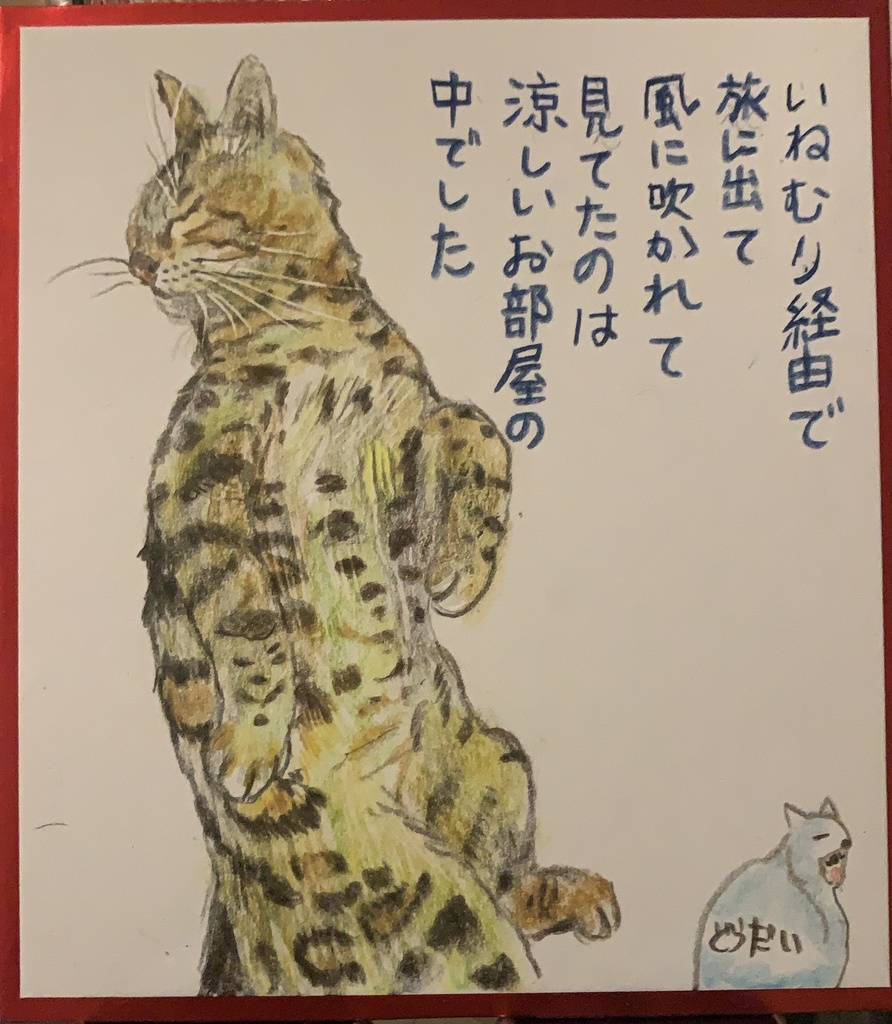 いねむり経由で
旅に出て
風に吹かれて
見てたのは
涼しいお部屋の
中でした
どうだい